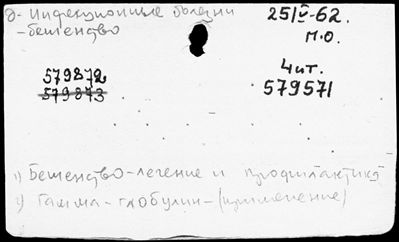 д- Инфекционные болезни
-бешенство
25/V-62.
м.о.
579872
579873
4 чит.
579571
1) Бешенство-лечение и профилактика
2) Гамма-глобулин-(применение)